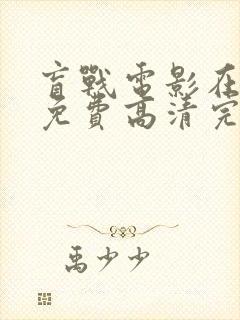 盲戰電影在
免費高清完
禹少少